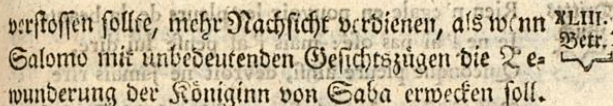 verstossen sollte, mehr Nachsicht verdienen, als wenn
Salomo mit unbedeutenden Gesichtszügen die Be-
wunderung der Königinn von Saba erwecken soll.
XLIII.
Betr.